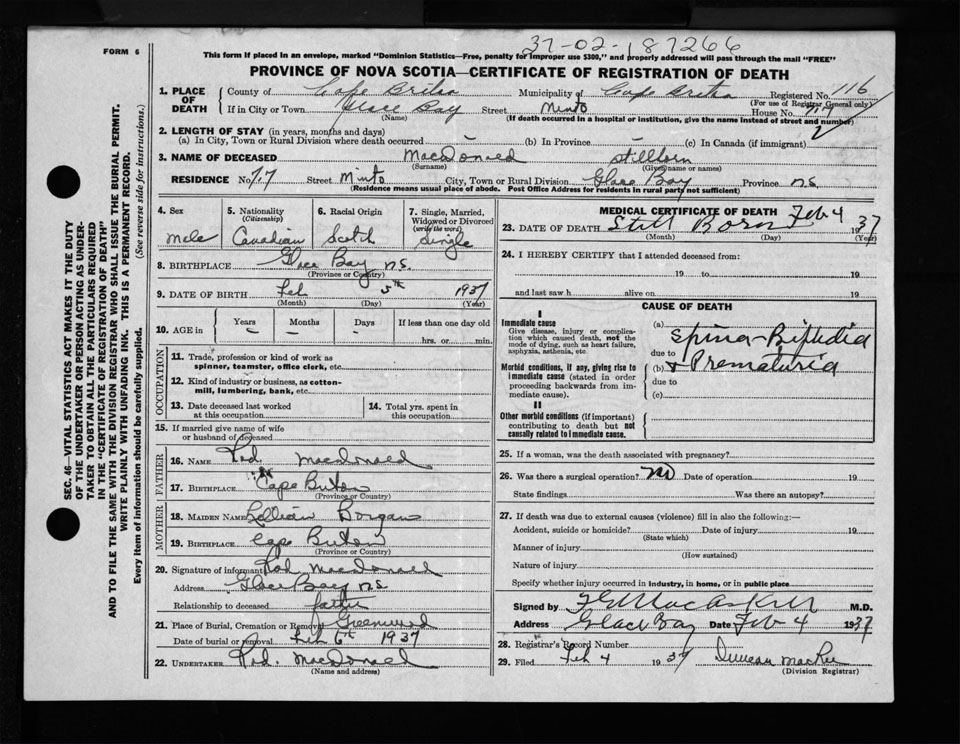 FORM 6
37-02-187266
This form if placed in an envelope, marked "Dominion Statistics—Free, penalty for improper use $300," and properly addressed will pass through the mail "FREE"
PROVINCE OF NOVA SCOTIA—CERTIFICATE OF REGISTRATION OF DEATH
1. PLACE OF DEATH
County of Cape Briton Municipality of Cape Breton Registered No. 116
(For use of Registrar General only)
If in City or Town Glace Bay Street Minto House No. 77
(Name) (If death occurred in a hospital or institution, give the name instead of street and number)
2. LENGTH OF STAY (in years, months and days)
(a) In City, Town or Rural Division where death occurred (b) In Province (c) In Canada (if immigrant)
3. NAME OF DECEASED MacDonald Stillborn
(Surname) (Given name or names)
RESIDENCE No. 77 Street Minto City, Town or Rural Division Glace Bay Province N.S.
(Residence means usual place of abode. Post Office Address for residents in rural party not sufficient)
4. Sex Male
5. Nationality (Citizenship) Canadian
6. Racial Origin Scotch
7. Single, Married, Widowed or Divorced (write the word) Single
8. BIRTHPLACE Glace Bay N.S.
(Province or Country)
9. DATE OF BIRTH Feb 5th 1937
(Month) (Day) (Year)
10. AGE in Years Months Days If less than one day old
hrs. or min.
OCCUPATION
11. Trade, profession or kind of work as spinner, teamster, office clerk, etc.
12. Kind of industry or business, as cotton-mill, lumbering, bank, etc.
13. Date deceased last worked at this occupation
14. Total yrs. spent in this occupation
15. If married give name of wife or husband of deceased
FATHER
16. NAME Rod. MacDonald
17. BIRTHPLACE Cape Breton
(Province or Country)
MOTHER
18. MAIDEN NAME Lillian
19. BIRTHPLACE Cape Breton
(Province or Country)
20. Signature of informant Rod MacDonald
Address Glace Bay N.S.
Relationship to deceased father
21. Place of Burial, Cremation or Removal Greenwood
Date of burial or removal Feb 6th 1937
22. UNDERTAKER Rod. MacDonald
(Name and address)
MEDICAL CERTIFICATE OF DEATH
23. DATE OF DEATH Still Born Feb 4 1937
(Month) (Day) (Year)
24. I HEREBY CERTIFY that I attended deceased from:
19 to 19
and last saw h alive on 19
CAUSE OF DEATH
I
Immediate cause
Give disease, injury or complication which caused death, not the mode of dying, such as heart failure, asphyxia, asthenia, etc.
(a) Spina-Bifidia
due to
Morbid conditions, if any, giving rise to immediate cause (stated in order proceeding backwards from immediate cause).
(b) & Prematuria
due to
(c)
II
Other morbid conditions (if important) contributing to death but not causally related to immediate cause.
25. If a woman, was the death associated with pregnancy?
26. Was there a surgical operation? no Date of operation 19
State findings Was there an autopsy?
27. If death was due to external causes (violence) fill in also the following:—
Accident, suicide or homicide? Date of injury 19
(State which)
Manner of injury
(How sustained)
Nature of injury
Specify whether injury occurred in industry, in home, or in public place
Signed by M.D.
Address Glace Bay Date Feb 4 1937
28. Registrar's Record Number
29. Filed Feb 4 1937 Duncan MacRae
(Division Registrar)
SEC. 46—VITAL STATISTICS ACT MAKES IT THE DUTY
OF THE UNDERTAKER OR PERSON ACTING AS UNDER-
TAKER TO OBTAIN ALL THE PARTICULARS REQUIRED
IN THE "CERTIFICATE OF REGISTRATION OF DEATH"
AND TO FILE THE SAME WITH THE DIVISION REGISTRAR WHO SHALL ISSUE THE BURIAL PERMIT.
WRITE PLAINLY WITH UNFADING INK. THIS IS A PERMANENT RECORD.
Every item of information should be carefully supplied. (See reverse side for instructions.)